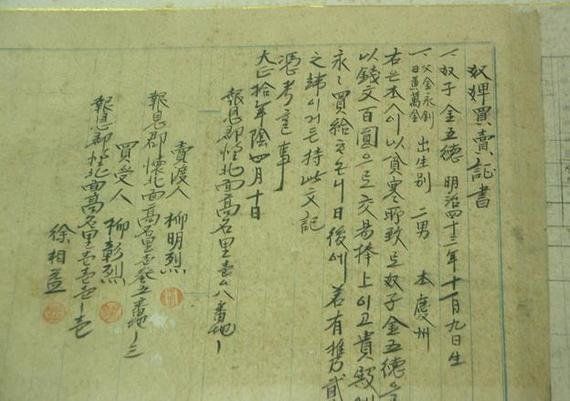 奴婢買賣証書
一、奴子 金五德 明治四十三年十一月九日生
一、父金永釗 萬金 出生別 二男 本慶州
右는本人이以貧寒所致로奴子金五德
以錢文百圓으로交易捧上이고貴殿
永々買給하오니日後에若有携貳
之 이거든持此文記
憑考 事
大正拾年陰四月十日
報恩郡懷北面高名里 八番地ノ
賣渡人 柳明烈
報恩郡懷北面高名里 五番地ノ三
買受人 柳彰烈
報恩郡懷北面高名里壹壹壹ノ壹
徐相益